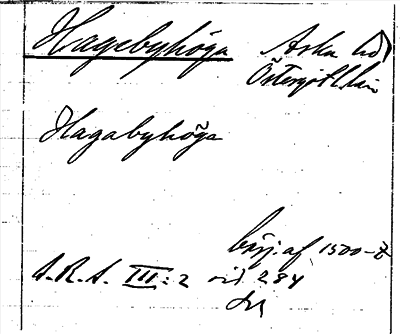 Hagebyhöga Aska hd
Östergötl. län
Hagabyhöga
börj. af 1500-t
S.R.A. III:2 vid 284